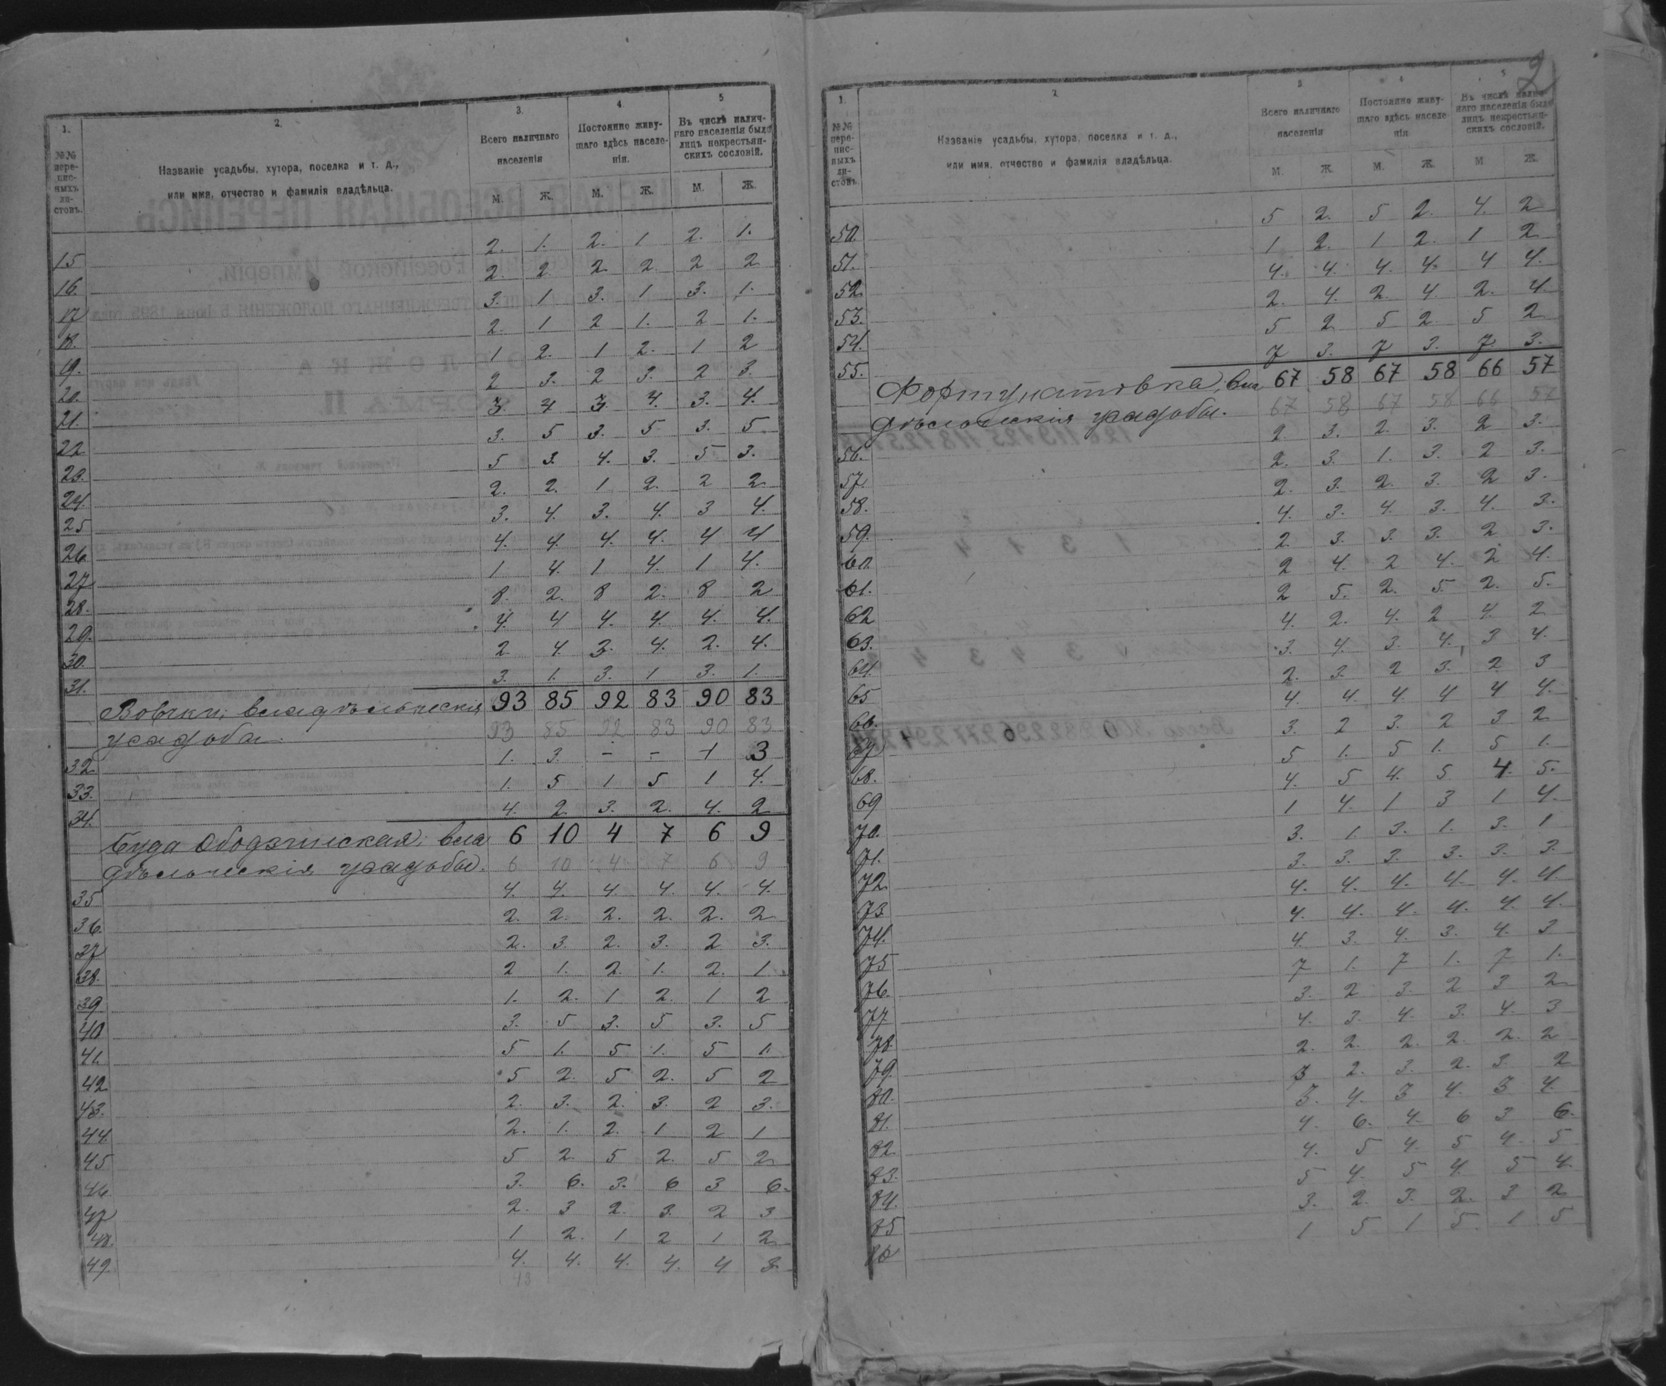 1.
2.
3.
4
5
№№ пере-
пис-
ныхъ
ли-
стовъ.
Названіе усадьбы, хутора, поселка и т. д.,
или имя, отчество и фамилія владѣльца.
Всего наличнаго
населенія
Постоянно живу-
щаго здѣсь населе-
нія.
Въ числѣ налич-
наго населенія было
лицъ некрестьян-
скихъ сословій.
М. Ж. М. Ж. М. Ж.
15 2. 1. 2. 1 2. 1.
16. 2. 2. 2. 2. 2 2
17 3. 1 3. 1 3. 1.
18. 2. 1 2 1. 2 1.
19. 1 2. 1 2. 1 2
20. 2 3. 2 3. 2 3.
21. 3. 4 3. 4. 3. 4.
22 3. 5 3. 5. 3. 5
23. 5 3. 4. 3. 5 3.
24. 2. 2. 1 2. 2 2.
25 3. 4. 3. 4. 3 4.
26. 4. 4. 4. 4. 4 4
27 1 4. 1 4. 1 4.
28. 8. 2. 8 2. 8 2
29. 4. 4 4. 4. 4. 4.
30. 2. 4. 3. 4. 2. 4.
31. 3. 1. 3. 1 3. 1.
владѣльческія 93 85 92 83 90 83
усадьбы. 93 85 92 83 90 83
32. 1. 3. - - 1 3
33. 1. 5 1 5 1 4.
34. 4. 2. 3. 2. 4. 2
Буда Ободзинская, вла 6 10 4 7 6 9
дѣльческія усадьбы. 6 10 4 7 6 9
35 4. 4. 4. 4. 4. 4.
36. 2. 2. 2. 2. 2. 2
37 2. 3. 2. 3. 2 3.
38. 2 1. 2. 1. 2. 1
39 1. 2. 1. 2. 1 2
40 3. 5 3. 5 3. 5
41. 5 1. 5 1. 5 1.
42 5 2. 5 2. 5 2
43. 2. 3. 2. 3. 2 3.
44 2. 1. 2. 1 2 1
45 5 2 5 2. 5 2.
46 3. 6. 3. 6 3 6.
47 2. 3 2. 3. 2 3
48. 1 2. 1 2 1 2
49. 4. 4. 4. 4. 4 3.
2
1.
2.
3
4
5
№№
пере-
пис-
ныхъ
ли-
стовъ.
Названіе усадьбы, хутора, поселка и т. д.,
или имя, отчество и фамилія владѣльца.
Всего наличнаго
населенія
Постоянно живу-
щаго здѣсь населе-
нія.
Въ числѣ налич-
наго населенія было
лицъ некрестьян-
скихъ сословій.
М. Ж. М. Ж. М Ж.
50. 5 2. 5 2. 4. 2
51. 1 2. 1 2. 1 2
52. 4. 4. 4. 4. 4 4.
53. 2. 4. 2. 4. 2. 4
54. 5 2 5 2 5 2
55. 7 3. 7 3. 7. 3.
Фортунатовка, вла 67 58 67 58 66 57
дѣльческія усадьбы. 67 58 67 58 66 57
56. 2 3. 2. 3. 2 3.
57. 2. 3. 1. 3. 2 3.
58. 2. 3. 2. 3. 2 3.
59. 4. 3. 4. 3. 4. 3.
60 2. 3. 3. 3. 2 3.
61. 2 4. 2 4. 2 4.
62 2 5. 2. 5. 2. 5.
63. 4. 2. 4. 2 4. 2
64. 3. 4. 3. 4. 3 4.
65 2. 3. 2 3. 2 3
66. 4. 4 4. 4 4 4.
67. 3. 2 3. 2 3. 2
68. 5 1. 5 1. 5 1.
69 4. 5 4. 5 4. 5.
70. 1 4. 1 3 1 4.
71. 3. 1 3. 1. 3. 1
72. 3. 3. 3. 3. 3. 3.
73 4. 4. 4. 4. 4. 4
74. 4. 4. 4. 4. 4. 4.
75 4. 3. 4. 3. 4. 3
76. 7 1. 7 1. 7 1.
77 3. 2 3. 2 3 2
78 4. 3. 4. 3. 4. 3
79 2. 2. 2. 2. 2. 2
80. 3 2. 3. 2. 3. 2
81. 3. 4. 3 4. 3 4.
82. 4. 6. 4. 6 3 6.
83. 4. 5 4. 5 4. 5
84. 5 4. 5 4 5 4.
85 3. 2. 3. 2. 3 2
86 1 5 1 5. 1 5